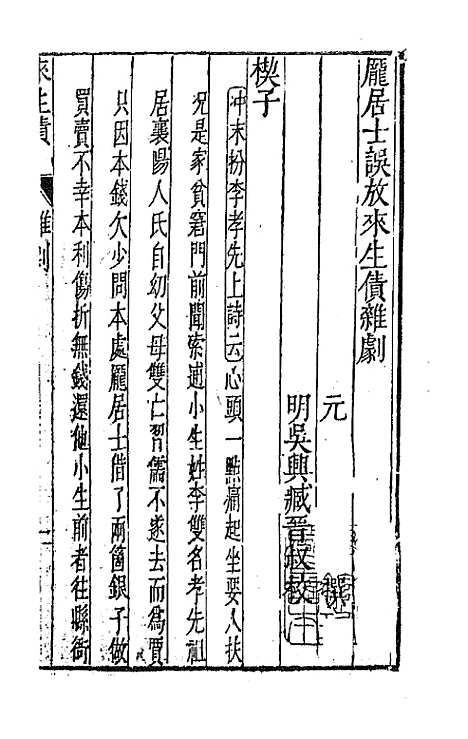 龐居士誤放來生債雜劇
元　撰
明吳興臧晉叔校
楔子
冲末扮李孝先上詩云心頭一點痛起坐要人扶
況是家貧窘門前聞索逋小生姓李雙名孝先祖
居襄陽人氏自幼父母雙亡習儒不遂去而爲賈
只因本錢欠少問本處龐居士借了兩箇銀子做
買賣不幸本利傷折無錢還他小生前者往縣衙
來生債　雜劇